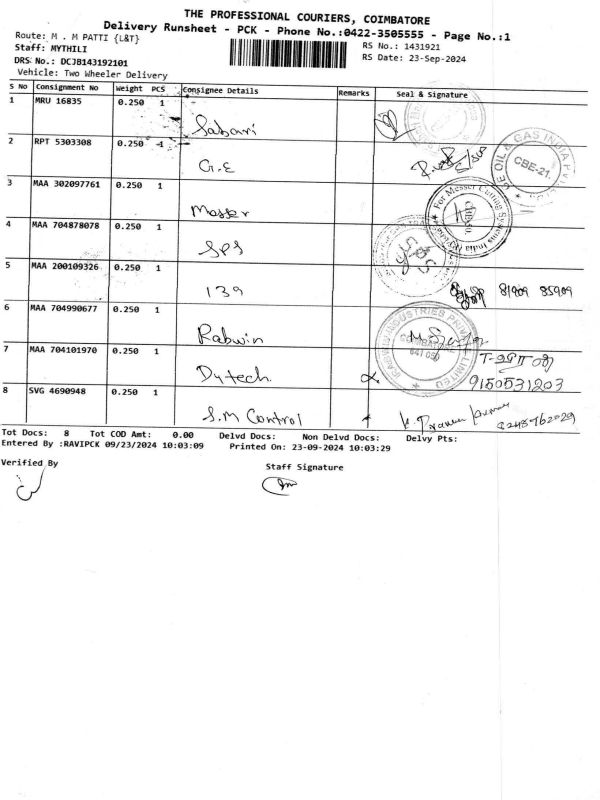 THE PROFESSIONAL COURIERS, COIMBATORE
Delivery Runsheet - PCK - Phone No.:0422-3505555 - Page No.:1
Route: M . M PATTI {L&T}
RS No.: 1431921
Staff: MYTHILI
RS Date: 23-Sep-2024
DRS No.: DCJB143192101
Vehicle: Two Wheeler Delivery
S No Consignment No Weight PCS Consignee Details Remarks Seal & Signature
1 MRU 16835 0.250 1 Sabari
2 RPT 5303308 0.250 1 G.E
OIL & GAS INDIA CBE-21.
3 MAA 302097761 0.250 1 Messer
For Messer Cutting Systems India
4 MAA 704878078 0.250 1 SPS
5 MAA 200109326 0.250 1 139
6 MAA 704990677 0.250 1 Rabwin
RABWIN INDUSTRIES PRIVATE LIMITED
COIMBATORE
641 050
7 MAA 704101970 0.250 1 Dytech
9150531203
8 SVG 4690948 0.250 1 S.M Control
Tot Docs: 8 Tot COD Amt: 0.00 Delvd Docs: Non Delvd Docs: Delvy Pts:
Entered By :RAVIPCK 09/23/2024 10:03:09 Printed On: 23-09-2024 10:03:29
Verified By Staff Signature